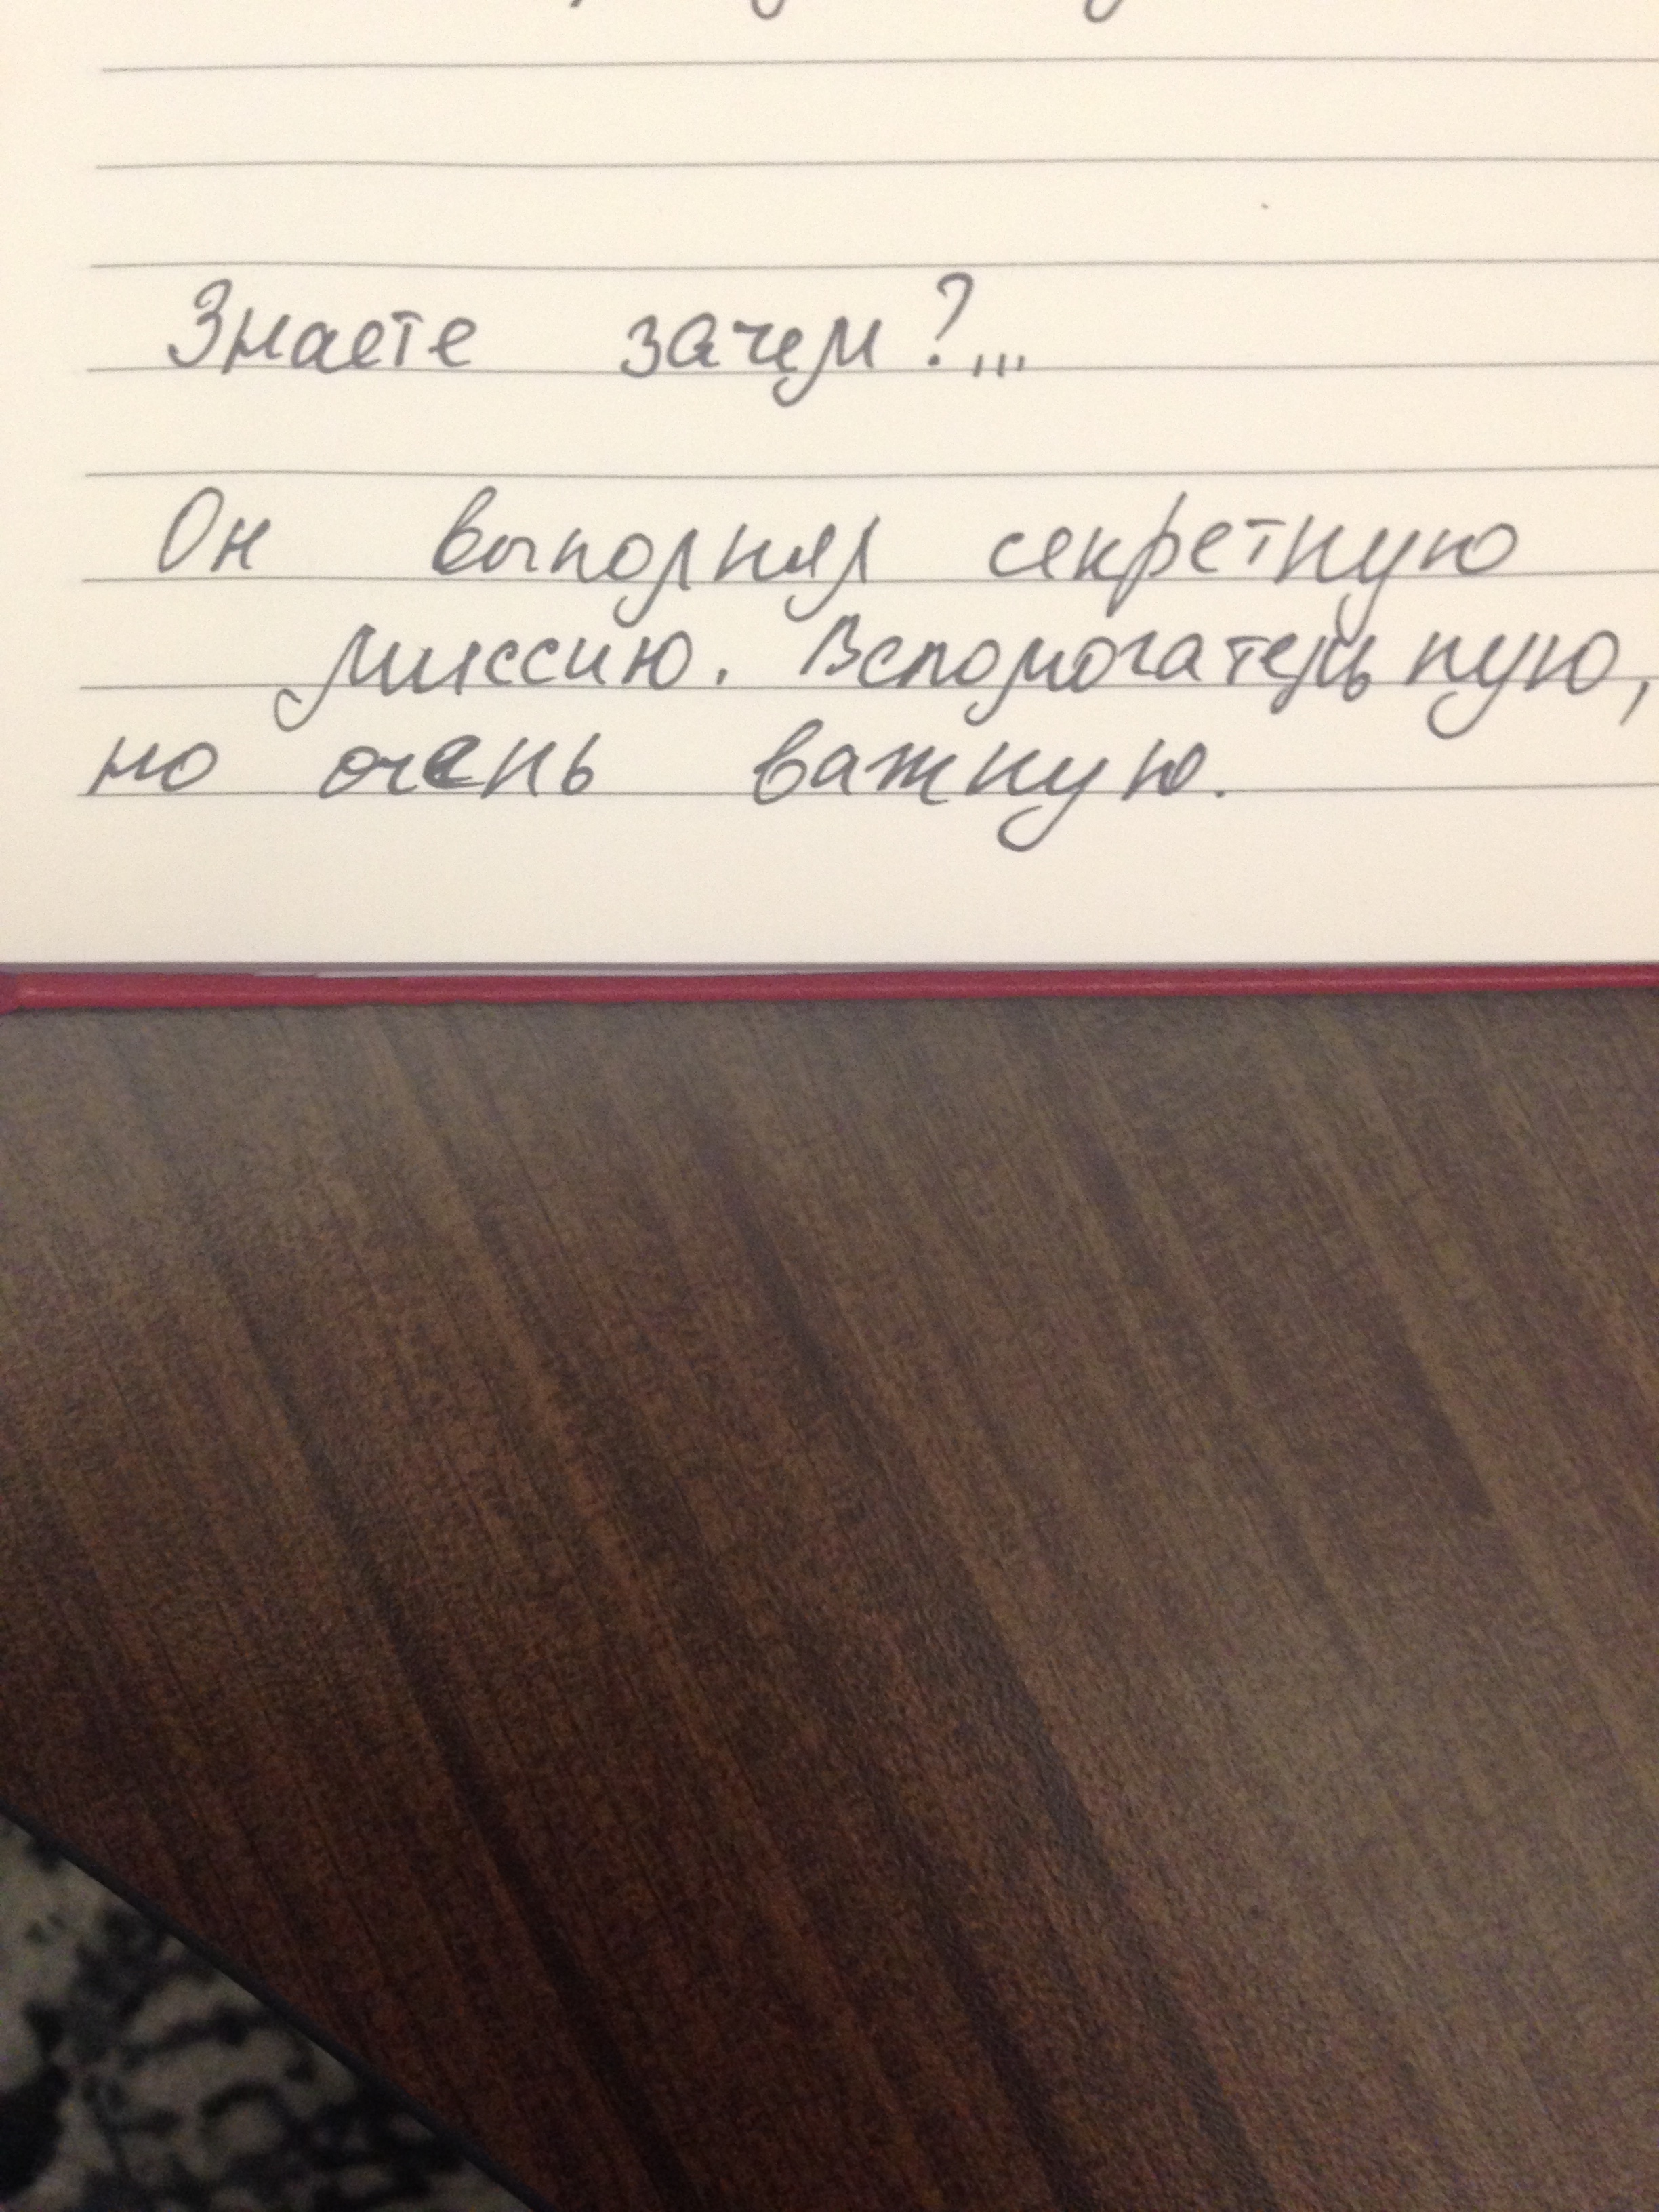 Знаете зачем?...
Он выполнял секретную
миссию. Вспомогательную,
но очень важную.